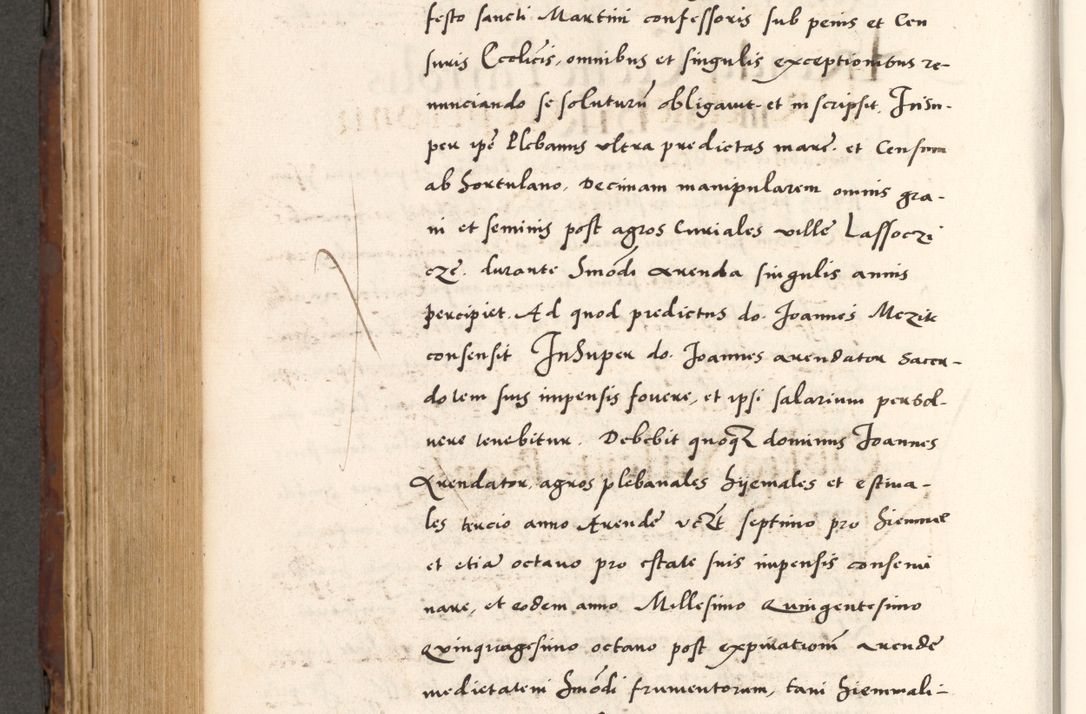 festo sancti Martini confessoris sub penis et Cen
suris Eccolicis, omnibus et singulis exceptionibus re-
nunciando se soluturũ obligavit et inscripsit. Insu-
per ipẽ Plebanus ultra predictas marc. et Censum
ab hortulano, Decimam manipularem omnis gra-
ni et seminis post agros Curiales villẽ Lassoczi
czẽ. durante hmõdi arenda singulis annis
percipiet. Ad quod predictus do. Joannes Mezik
consensit Insuper do. Joannes arendator sacer-
dotem suis impensis fovere, et ipsi salarium persol-
vere tenebitur. Debebit quoqz dominus Joannes
Arendator, agros plebanales hijemales et estiva-
les tercio anno Arendẽ vczt septimo pro hiemme
et etiã octavo pro estate suis impensis consemi
nare, et eodem anno Millesimo Quingentesimo
Quinquagesimo octavo post expirationẽ arendẽ
medietatem hmõdi frumentorum, tam hiemmali-